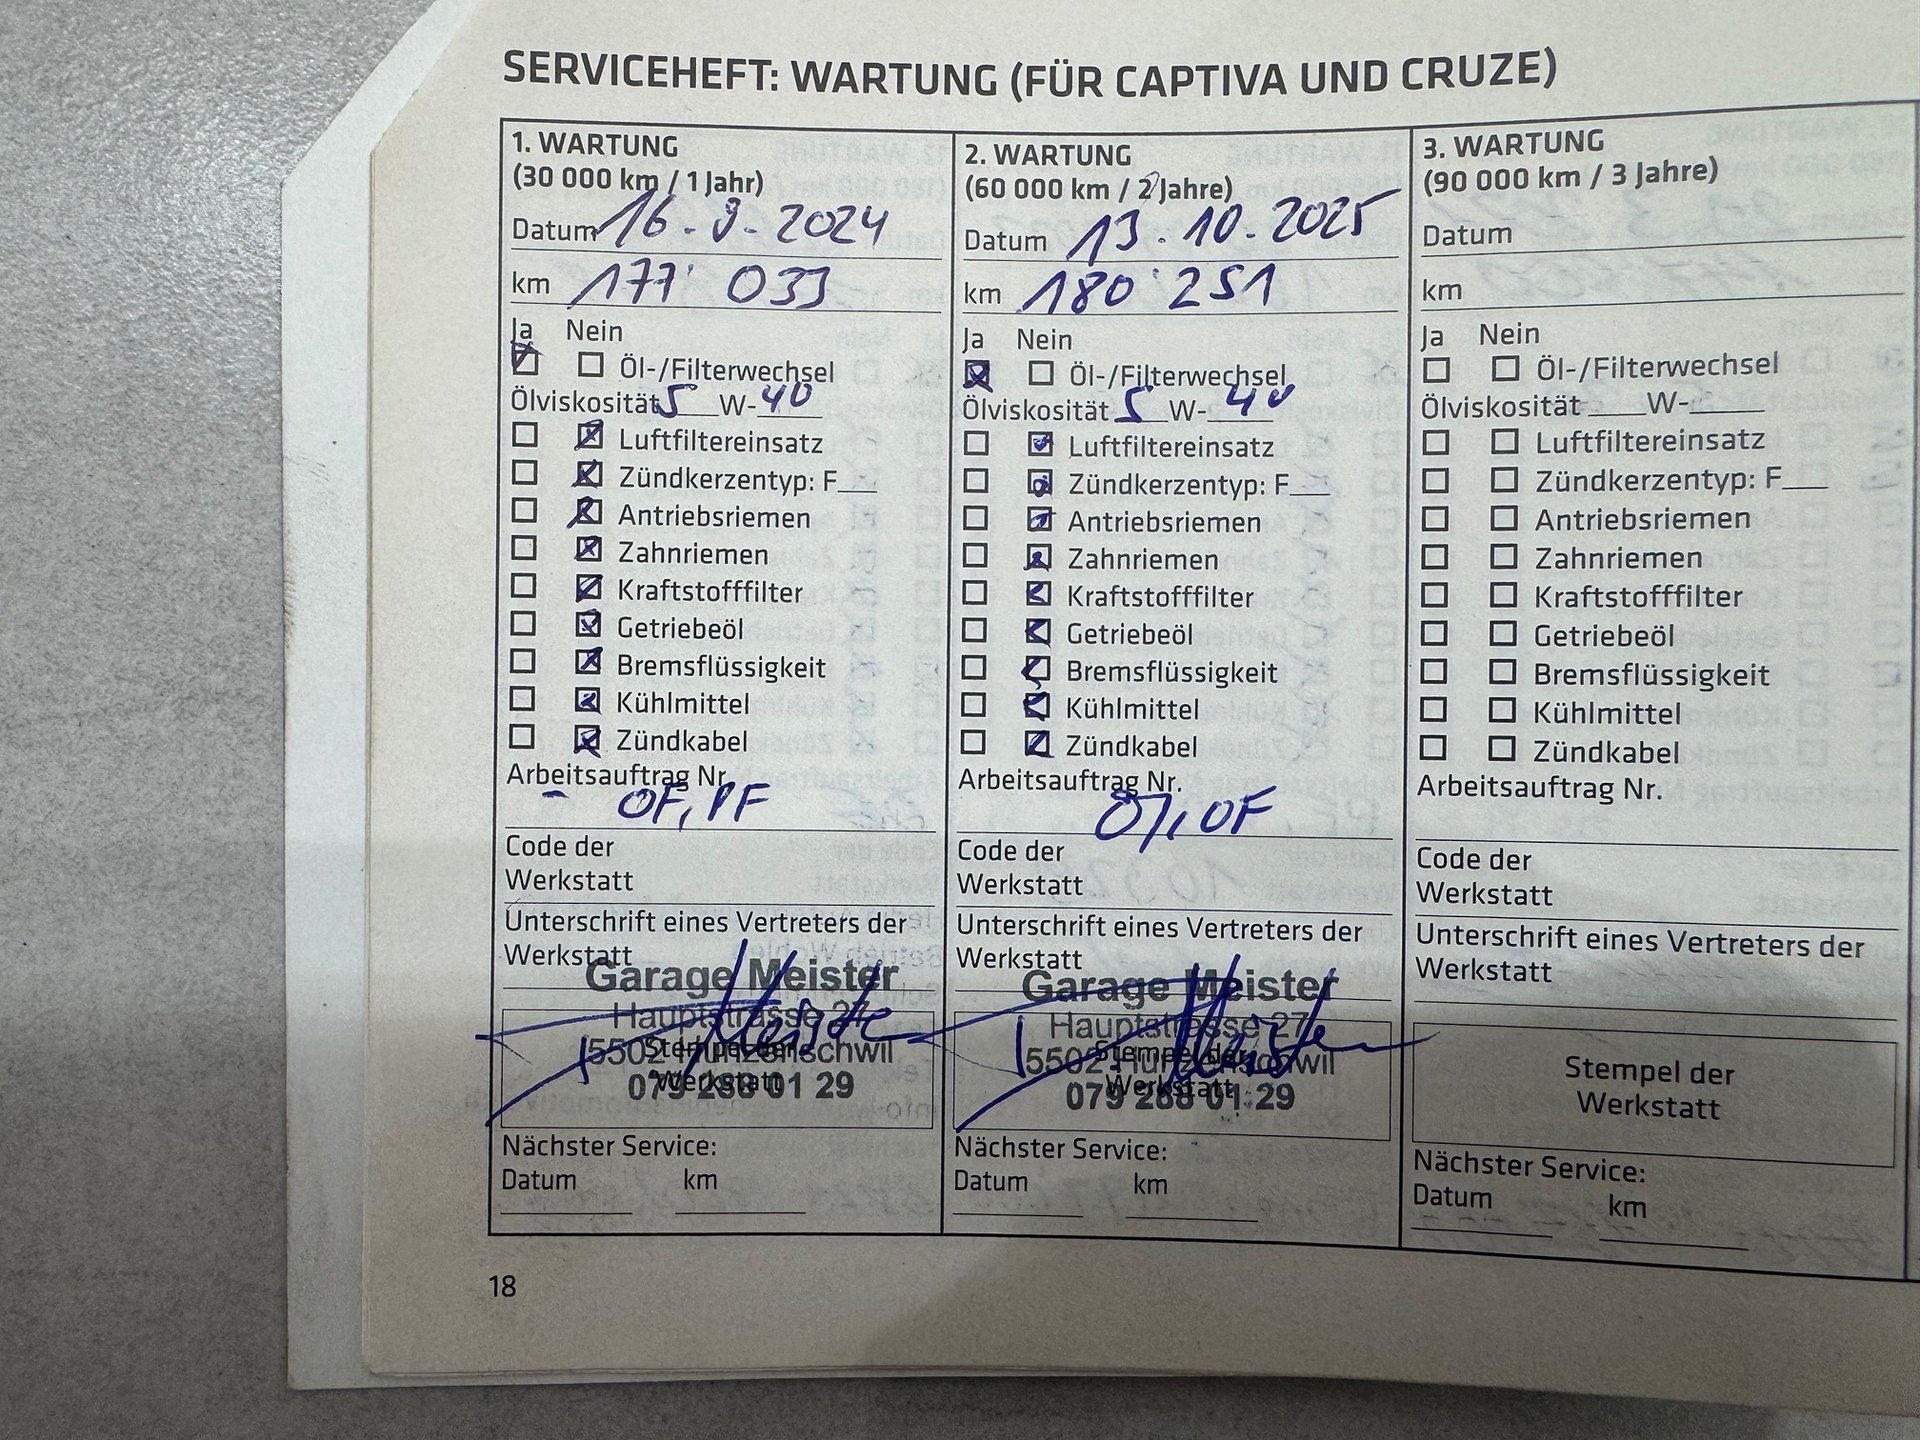 SERVICEHEFT: WARTUNG (FÜR CAPTIVA UND CRUZE)
1. WARTUNG
(30 000 km / 1 Jahr)
Datum 16.9.2024
km 177'033
Ja Nein
Öl-/Filterwechsel
Ölviskosität 5 W-40
Luftfiltereinsatz
Zündkerzentyp: F___
Antriebsriemen
Zahnriemen
Kraftstofffilter
Getriebeöl
Bremsflüssigkeit
Kühlmittel
Zündkabel
Arbeitsauftrag Nr.
- OF, PF
Code der
Werkstatt
Unterschrift eines Vertreters der
Werkstatt
Garage Meister
Hauptstrasse 27
5502 Hunzenschwil
079 288 01 29
Stempel der
Werkstatt
Nächster Service:
Datum km
2. WARTUNG
(60 000 km / 2 Jahre)
Datum 13.10.2025
km 180'251
Ja Nein
Öl-/Filterwechsel
Ölviskosität 5 W-40
Luftfiltereinsatz
Zündkerzentyp: F___
Antriebsriemen
Zahnriemen
Kraftstofffilter
Getriebeöl
Bremsflüssigkeit
Kühlmittel
Zündkabel
Arbeitsauftrag Nr.
OF
Code der
Werkstatt
Unterschrift eines Vertreters der
Werkstatt
Garage Meister
Hauptstrasse 27
5502 Hunzenschwil
079 288 01 29
Stempel der
Werkstatt
Nächster Service:
Datum km
3. WARTUNG
(90 000 km / 3 Jahre)
Datum
km
Ja Nein
Öl-/Filterwechsel
Ölviskosität ____W-_____
Luftfiltereinsatz
Zündkerzentyp: F___
Antriebsriemen
Zahnriemen
Kraftstofffilter
Getriebeöl
Bremsflüssigkeit
Kühlmittel
Zündkabel
Arbeitsauftrag Nr.
Code der
Werkstatt
Unterschrift eines Vertreters der
Werkstatt
Stempel der
Werkstatt
Nächster Service:
Datum km
18